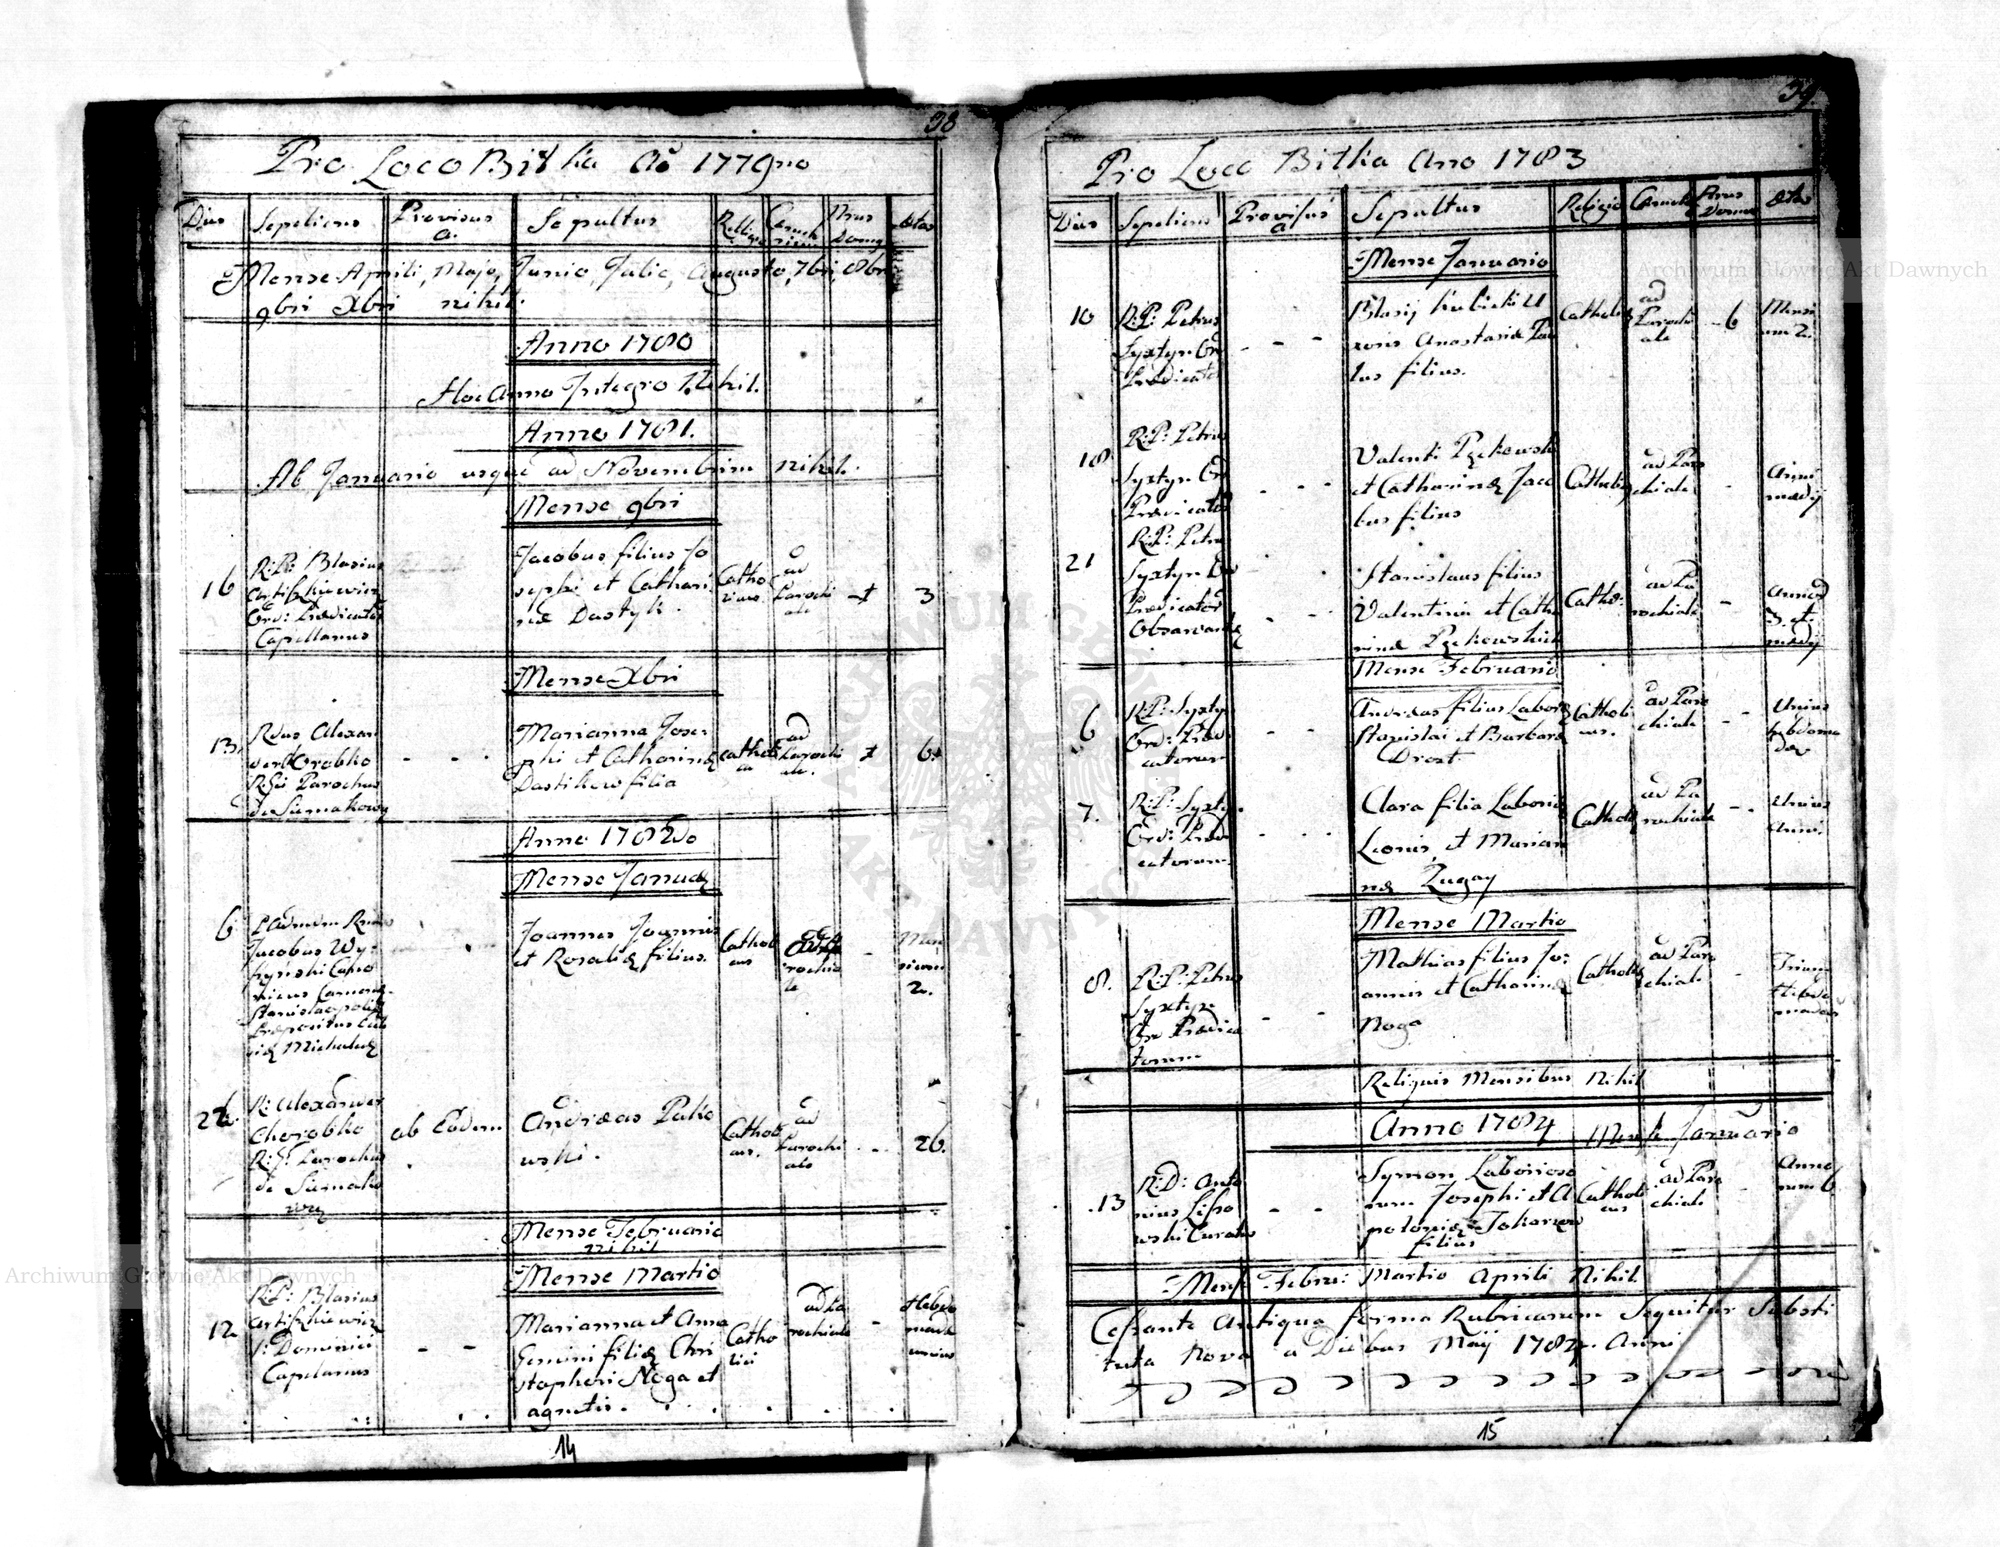 38
Pro Loco Bitka Ao 1779no
Dies Sepeliens Provisus a. Sepultus Religio Cemeterium Nrus Domus Ætas
Mense Aprili, Majo, Junio, Julio, Augusto, 7bri, 8bri
9bri Xbri nihil.
Anno 1780
Hoc Anno Integro Nihil.
Anno 1781.
Ab Januario usque ad Novembrim nihil.
Mense 9bri
16
R: P: Blasius
Ord: Prædicator
Capellanus
Jacobus filius Jo
sephi et Cathari
næ Dastyk.
Catho
licus
ad
Parochi
ale
3
Mense Xbri
13.
Rdus Alexan
der Chorobko
Parochus
de Siemakowy
Marianna Jose
phi et Catharinæ
Dastikow filia
Catholi
ca
ad
Parochi
ale.
6.
Anno 1782do
Mense Januar
6.
Jacobus Wy
Præpositus
Joannes Joannis
et Rosaliæ filius.
Catholi
cus
rochia
le
Men
sium
2.
22.
R: Alexander
Chorobko
R: G: Parochus
de Siemako
ab Eodem
Andreas Pako
wski.
Catholi
cus.
ad
Parochi
ale
26.
Mense Februario
nihil
Mense Martio
12
R: P: Blasius
S: Dominici
Capelanus
Marianna et Anna
Gemini filiæ Chri
stophori Noga et
Agnetis.
Catho
lici
ad Pa
rochiale
Hebdo
madæ
unius
14
39.
Pro Loco Bitka Ano 1783
Dies Sepeliens Provisus a Sepultus Religio Cemete Nrus Domus Ætas
Mense Januario
10
R: P: Petrus
Syxtyn Ord
Prædicator
Blasij Kubicki U
xoris Anastasiæ Pau
lus filius.
Catholi
ad
Parochi
ale
6
Mensi
um 2.
18.
R: P: Petrus
Syxtyn Ord
Prædicator
Valenti
et Catharinæ Jaco
bus filius
Catholi
ad Paro
chiale
Anni
medij
21
R: P: Petrus
Syxtyn Ord
Prædicator
Observantiæ
Stanislaus filius
Valentini et Catha
rinæ
Catho:
ad Pa
rochiale
3 et
medij
Mense Februario
6
R: P: Syxtyn
Ord: Præd
icatorum
Andreas filius Labor
Stanislai et Barbaræ
Drozt
Catholi
cus.
ad Paro
chiale
Unius
hebdoma
dæ
7.
R: P: Syxtyn
Ord: Præd
icatorum
Clara filia Laborio
Leonis et Marian
næ Zugay
Catholi
ad Pa
rochiale
Unius
Anni.
Mense Martio
8.
R: P: Petrus
Syxtyn
Ord Prædica
torum
Mathias filius Jo:
annis et Catharinæ
Noga
Catholi
ad Paro
chiale
Trium
Hebdo
madar
Reliquis Mensibus Nihil
Anno 1784 Mense Januario
13
R: D: Anto
nius Lisso
wski Curatus
Symon Laborioso
rum Josephi et A
poloniæ Tokarzow
filius
Catholi
cus
ad Paro
chiale
Anno
rum 6
Mense Febru: Martio Aprili Nihil
Cessante Antiqua forma Rubricarum Sequitur Substi
tuta Nova a Diebus Maij 1784. Anni
15
Archiwum Główne Akt Dawnych
Archiwum Główne Akt Dawnych
ARCHIWUM GŁÓWNE AKT DAWNYCH